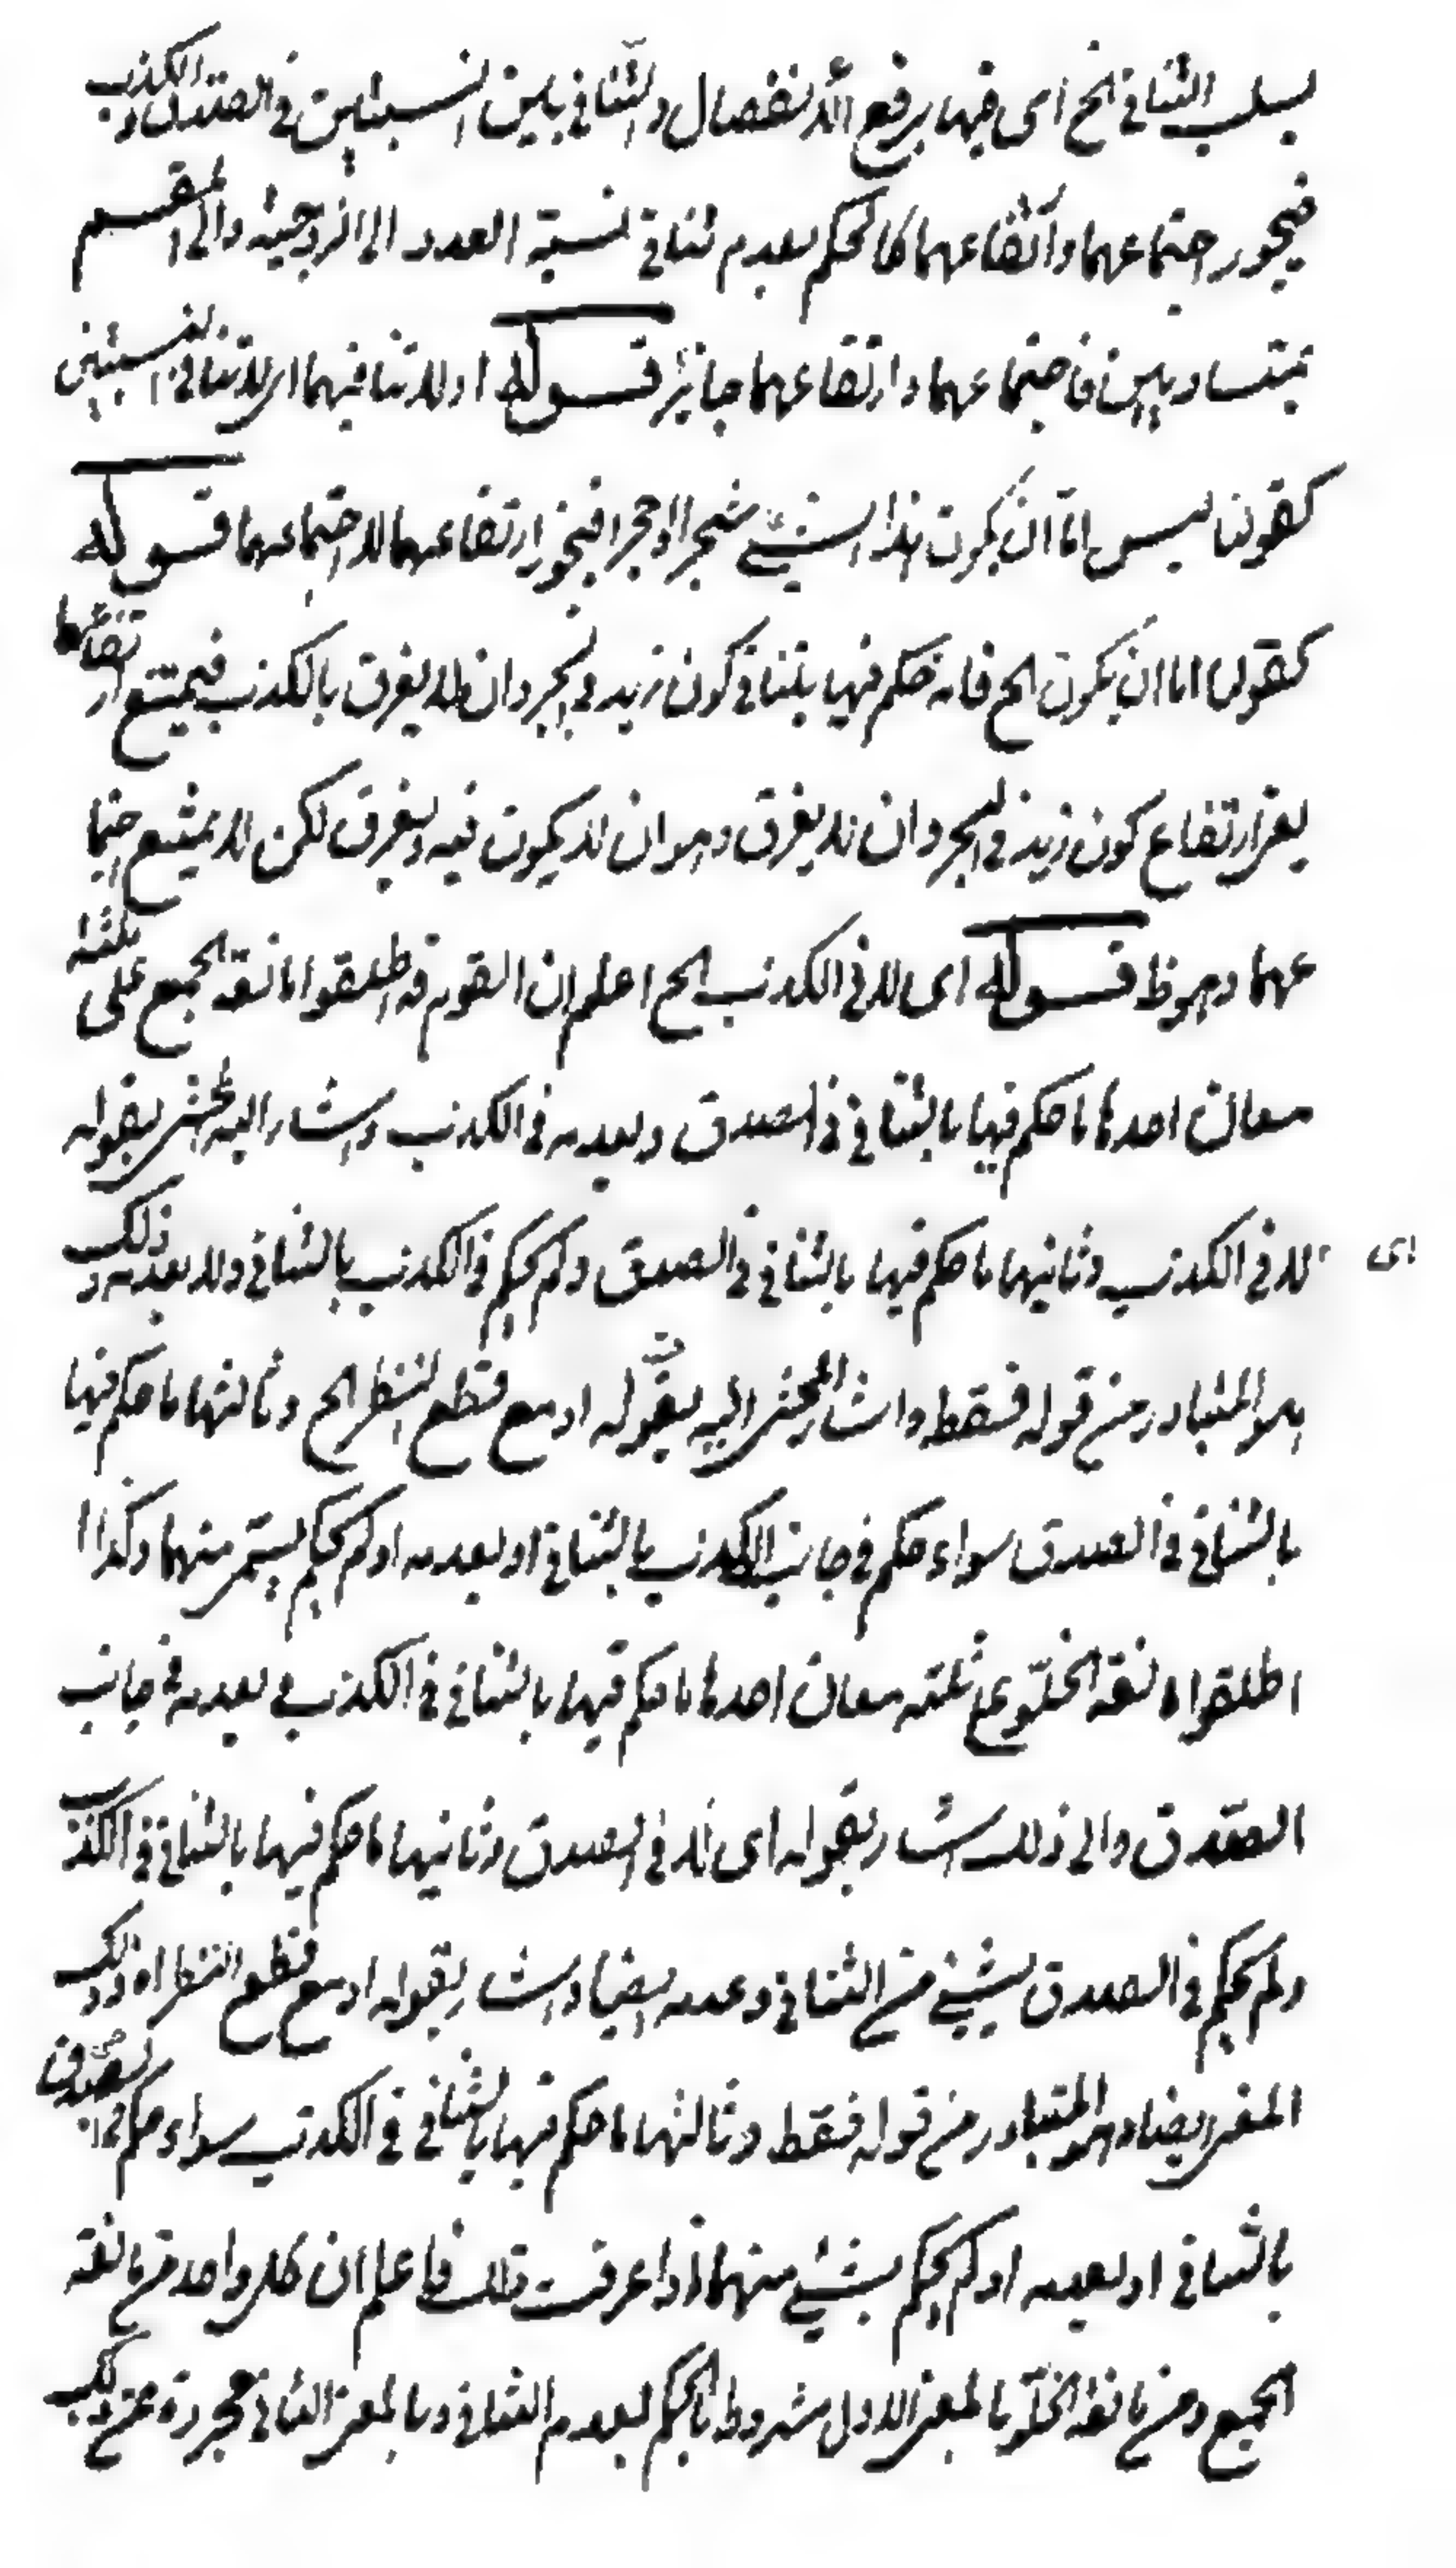 بسلب التنافى الخ اى فيها برفع الانفصال والتنافى بين النسبتين فى الصدق والكذب
فيجوز اجتماعهما وارتفاعهما كالحكم بعدم تنافى نسبة العدد الى الزوجية والى المنقسم
بمتساويين فاجتماعهما وارتفاعهما جايز قوله او لا تنافيهما اى لا تنافى النسبتين
كقولنا ليس اما ان يكون هذا الشئ شجرا او حجرا فيجوز ارتفاعهما لا اجتماعهما قوله
كقولنا اما ان يكون الخ فانه حكم فيها بتنافى كون زيد فى البحر وان لا يغرق بالكذب فيمتنع ارتفاعهما
يعنى ارتفاع كون زيد فى البحر وان لا يغرق وهو ان لا يكون فيه ويغرق لكن لا يمتنع اجتما
عهما وهو ظ قوله اى لا فى الكذب الخ اعلم ان القوم قد اطلقوا مانعة الجمع على ثلثة
معان احدها ما حكم فيها بالتنافى فى الصدق وبعدمه فى الكذب واشار اليه المحشى بقوله
اى لا فى الكذب وثانيها ما حكم فيها بالتنافى فى الصدق ولم يحكم فى الكذب بالتنافى ولا بعدمه وذلك
هو المتبادر من قوله فقط واشار المحشى اليه بقوله او مع قطع النظر الخ وثالثها ما حكم فيها
بالتنافى فى الصدق سواء حكم فى جانب الكذب بالتنافى او بعدمه او لم يحكم بشئ منهما وكذا
اطلقوا مانعة الخلو على ثلثة معان احدها ما حكم فيها بالتنافى فى الكذب وبعدمه فى جانب
الصدق والى ذلك اشار بقوله اى لا فى الصدق وثانيها ما حكم فيها بالتنافى فى الكذب
ولم يحكم فى الصدق بشئ من التنافى وعدمه ايضا واشار بقوله او مع قطع النظر اه وذلك
المعنى ايضا هو المتبادر من قوله فقط وثالثها ما حكم فيها بالتنافى فى الكذب سواء حكم فى الصدق
بالتنافى او بعدمه او لم يحكم بشئ منهما اذا عرفت ذلك فاعلم ان كل واحد من مانعة
الجمع ومن مانعة الخلو بالمعنى الاول مشروط بالحكم بعدم التنافى وبالمعنى الثانى مجردة عن ذلك